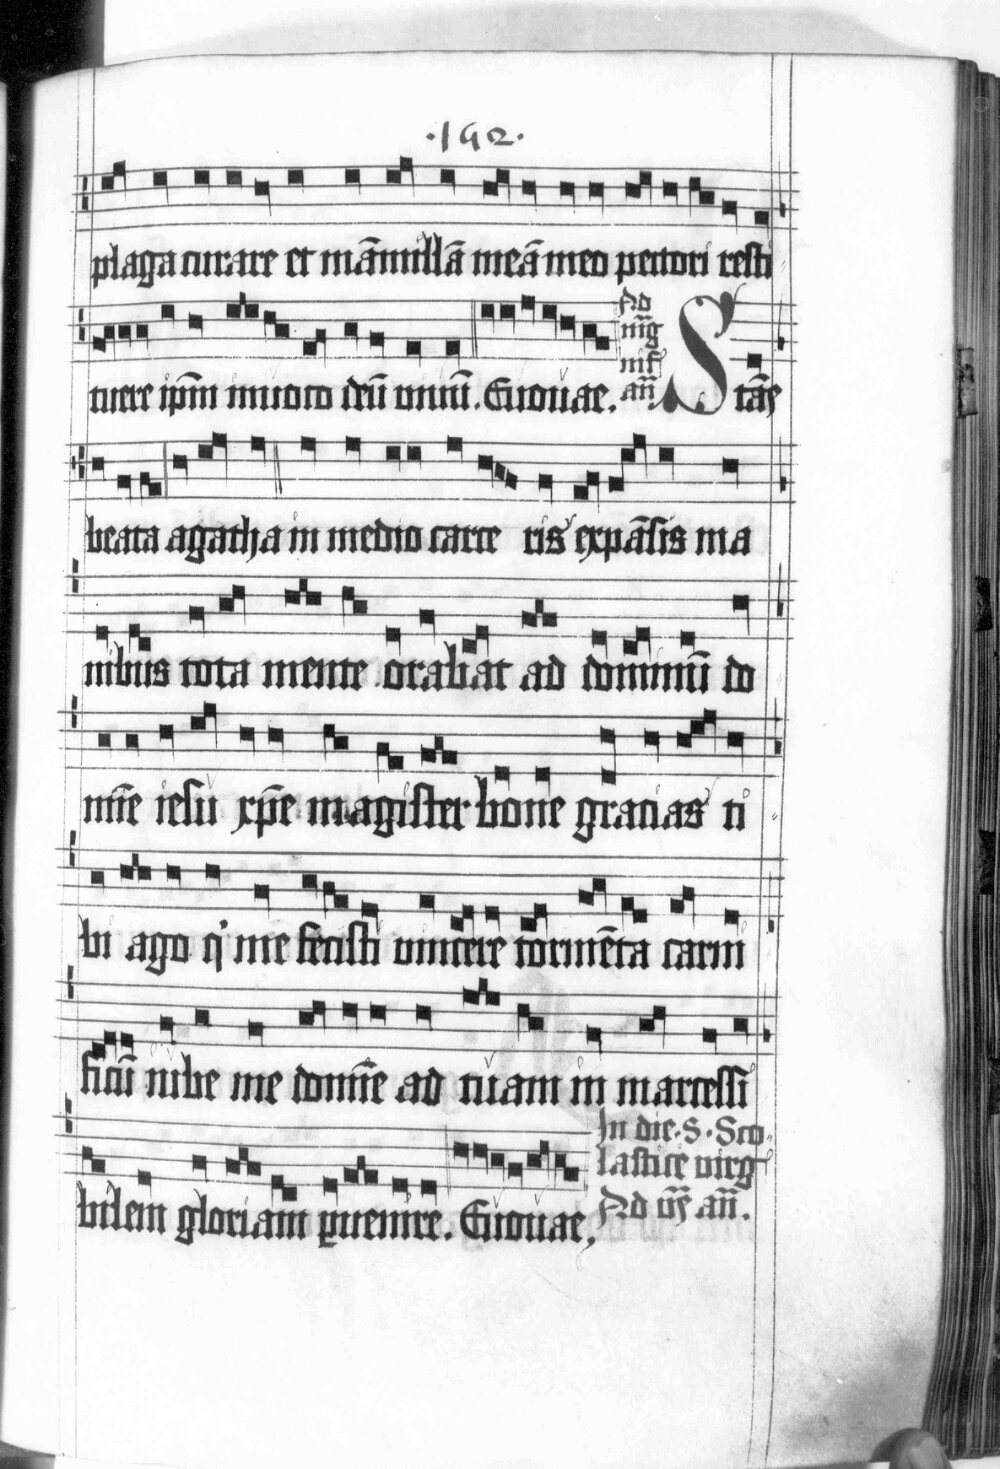 ·192·
plaga curare et māmillā meā meo pectori resti
tuere ipm̄ inuoco deū uiuū. Euouae.
Ad
mag
nif
an̄
Stās
beata agatha in medio carce ris expāsis ma
nibus tota mente orabat ad dominū do
mīe iesu xp̄e magister bone gracias ti
bi ago q' me fecisti uincere tormēta carni
ficū iube me domīe ad tuam in marcessi
bilem gloriam puenire. Euouae,
In die·S·Sco-
lastice uirg
Ad an̄.